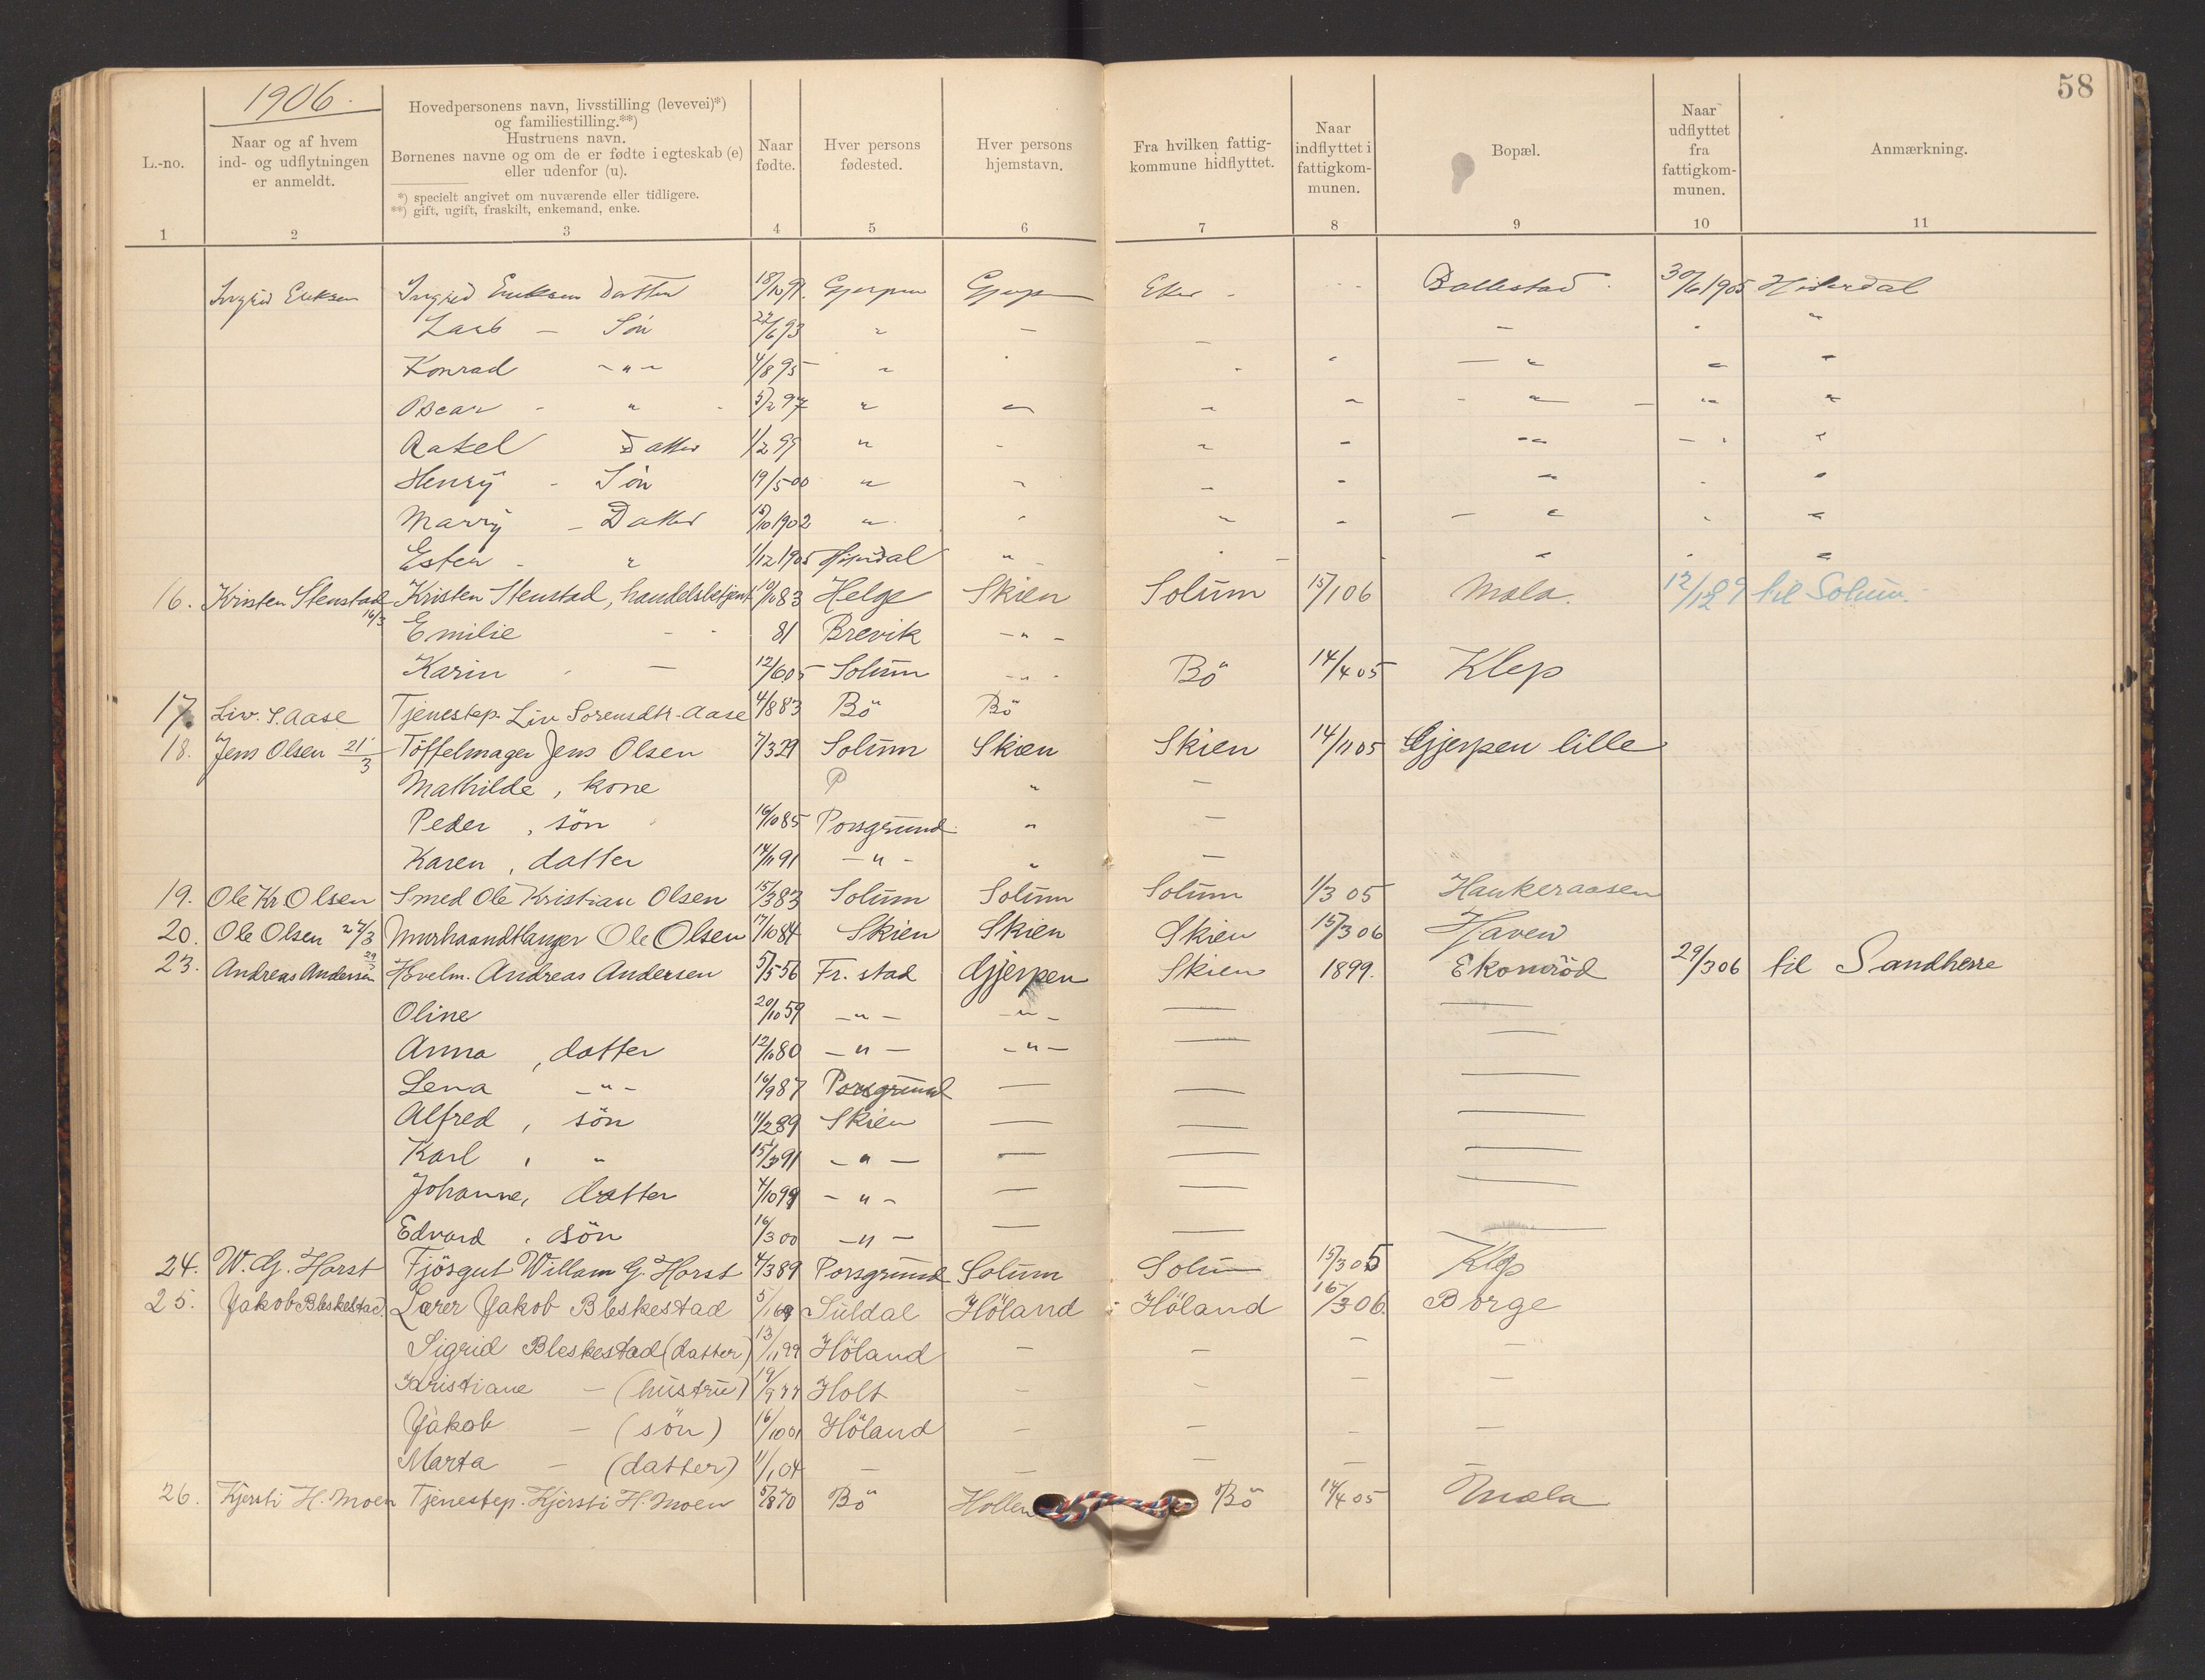 58
1906.
L.-no.
Naar og af hvem ind- og udflytningen er anmeldt.
Hovedpersonens navn, livsstilling (levevei)*) og familiestilling.**)
Hustruens navn.
Børnenes navne og om de er fødte i egteskab (e) eller udenfor (u).
*) specielt angivet om nuværende eller tidligere.
**) gift, ugift, fraskilt, enkemand, enke.
Naar fødte.
Hver persons fødested.
Hver persons hjemstavn.
Fra hvilken fattigkommune hidflyttet.
Naar indflyttet i fattigkommunen.
Bopæl.
Naar udflyttet fra fattigkommunen.
Anmærkning.
1 2 3 4 5 6 7 8 9 10 11
Ingrid Eriksen Ingrid Eriksen datter 18/10 91. Gjerpen Gjerpen Eker - Bollestad 30/6 1905 Hiterdal
Lars - Sön 22/6 93 " - - - - "
Konrad - " - 4/8 95 " - - - " " "
Oscar - " 5/2 97 " " " " " " "
Rakel Datter 1/2 99 " - " - " - "
Henry - Sön 19/5 00 " " - - " - "
Marry - Datter 15/10 1902 " " " - - " " "
Ester - " 1/12 1905 Hiterdal " - " - "
16. Kristen Stenstad 16/3 Kristen Stenstad, handelsbetjent 10/10 83 Helge Skien Solum 15/1 06 Mæla. 12/12 09 til Solum.
Emilie - - 81 Brevik - " -
Karin - 12/6 05 Solum - " - Bö 14/4 05 Klep
17. Liv. S. Aase Tjenestep. Liv Sorensdtr. Aase 4/8 83 Bö Bö
18. Jens Olsen 21/3 Töffelmager Jens Olsen 7/3 29 Solum Skien Skien 14/11 05 Gjerpen lille
Mathilde, kone P " -
Peder, sön 16/10 85 Porsgrund " -
Karen, datter 14/11 91 - " - " -
19. Ole Kr. Olsen Smed Ole Kristian Olsen 15/3 83 Solum Solum Solum 1/3 05 Haukeraasen
20. Ole Olsen 27/3 Murhaandtlanger Ole Olsen 17/10 84 Skien Skien Skien 15/3 06 Hjaven
23. Andreas Andersen 29/3 Hövelm. Andreas Andersen 5/5 56 Fr. stad Gjerpen Skien 1899. Ekornröd 29/3 06 til Sandherre
Oline 20/10 59 - " - - " - - -
Anna, datter 12/10 80 - " - - " - - -
Lena - " - 16/9 87 Porsgrund - - -
Alfred, sön 11/2 89 Skien - - -
Karl, " 15/3 91 - " - - - -
Johanne, datter 4/10 99 - " - - - -
Edvard, sön 16/3 00 - " - - - -
24. W. G. Horst Fjösgut Willam G. Horst 4/3 89 Porsgrund Solum Solum 15/3 05 Klep
25. Jakob Bleskestad. Lærer Jakob Bleskestad 5/1 69 Suldal Höland Höland 16/3 06. Borge
Sigrid Bleskestad (datter) 13/11 99 Höland - - - -
Kristiane - (hustru) 19/9 77 Holt - - - -
Jakob - (sön) 16/10 01 Höland - - - -
Marta - (datter) 11/1 04 - - - - -
26. Kjersti H. Moen Tjenestep. Kjersti H. Moen 5/8 70 Bö Hollen Bö 14/4 05 Mæla